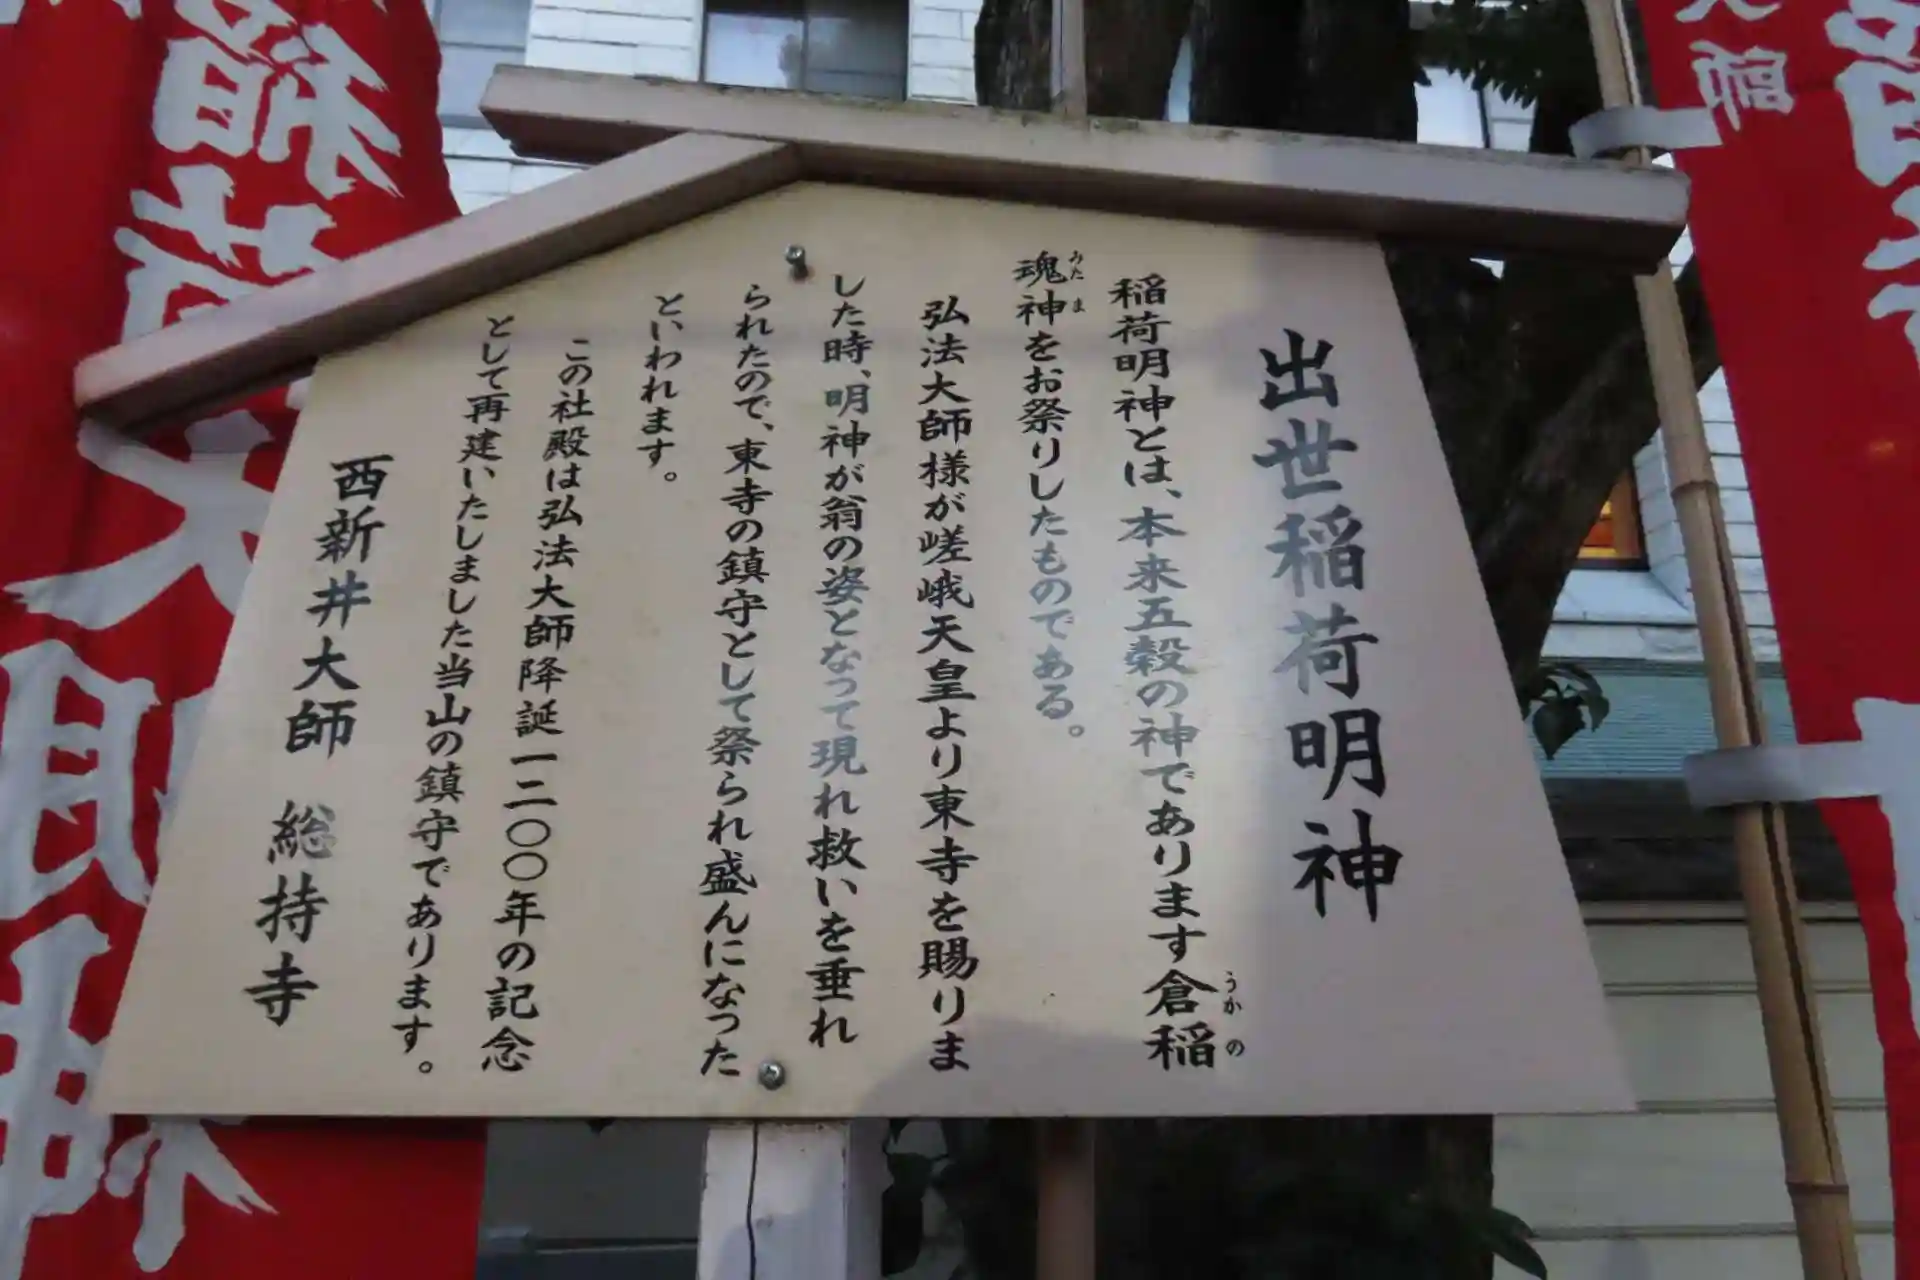 出世稲荷明神
稲荷明神とは、本来五穀の神であります倉稲
うかの
魂神をお祭りしたものである。
みたま
弘法大師様が嵯峨天皇より東寺を賜りま
した時、明神が翁の姿となって現れ救いを垂れ
られたので、東寺の鎮守として祭られ盛んになった
といわれます。
この社殿は弘法大師降誕一二〇〇年の記念
として再建いたしました当山の鎮守であります。
西新井大師 総持寺
稲荷大明神